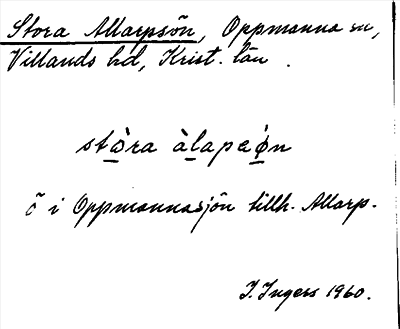 Stora Allarpsön, Oppmanna sn,
Villands hd, Krist. län.
stòra àlapaøn
ö i Oppmannasjön tillh. Allarp.
I. Ingers 1960.